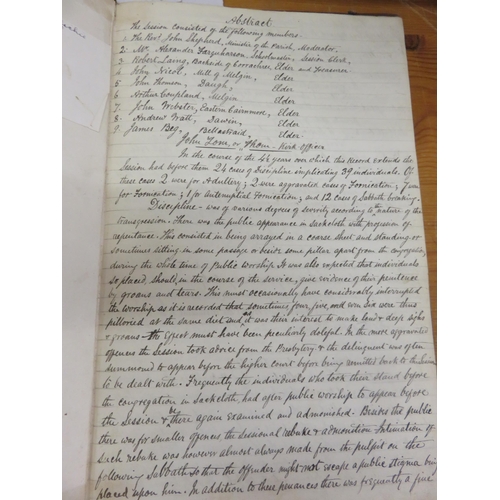 Abstract
The Session consisted of the following members.
1. The Revd. John Shepherd, Minister of the Parish, Moderator.
2. Mr. Alexander Farquharson, Schoolmaster, Session Clerk.
3. Robert Laing, of Elder and Treasurer
4. John Nicol, Mill of Melgin, Elder
5 John Thomson, Daugh, Elder
6. Arthur Coupland, Melgin Elder
7. John Webster, Eastern Elder
8. Andrew Watt, Dawin, Elder
9. James Beg, Bellastraid, Elder.
John Tom, or Thom - Kirk Officer
In the course of the 4½ years over which this Record extends the
Session had before them 24 cases of Discipline implicating 39 individuals. Of
these cases 2 were for Adultery; 2 were aggravated cases of Fornication; 7 were
for Fornication; 1 for Fornication; and 12 cases of Sabbath breaking.
Discipline - was of various degrees of severity according to the nature of the
transgression. There was the public appearance in Sackcloth with profession of
repentance. This consisted in being arrayed in a coarse sheet and standing or
sometimes sitting in some passage or beside some pillar apart from the congregation
during the whole time of Public Worship. It was also expected that individuals
so placed, should, in the course of the service, give evidence of their penitence
by groans and tears. This must occasionally have considerably interrupted
the worship as it is recorded that sometimes four, five, and even six were thus
pilloried at the same diet and as it was their interest to make loud & deep sighs
& groans the effect must have been peculiarly doleful. In the more aggravated
offences the Session took advice from the Presbytery & the delinquent was often
summoned to appear before the higher court before being remitted back to the Session
to be dealt with. - Frequently the individuals who took their stand before
the congregation in sackcloth, had after public worship to appear before
the Session & be there again examined and admonished. Besides the public
there was for smaller offences, the sessional rebuke & admonition. Intimation of
such rebuke was however almost always made from the pulpit on the
following Sabbath so that the offender might not escape a public stigma being
placed upon him. In addition to these penances there was frequently a fine